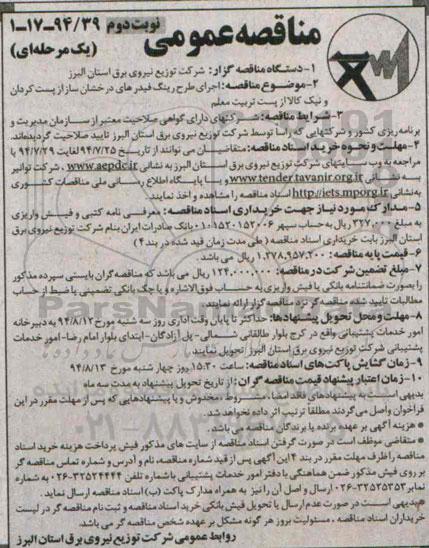 مناقصه عمومی نوبت دوم ۹۴/۳۹-۱۷-۱
(یک مرحله‌ای)
۱-دستگاه مناقصه گزار: شرکت توزیع نیروی برق استان البرز
۲-موضوع مناقصه: اجرای طرح رینگ فیدر های درخشان ساز از پست کردان
و نیک کالا از پست تربیت معلم
۳-شرایط مناقصه: شرکتهای دارای گواهی صلاحیت معتبر از سازمان مدیریت و
برنامه ریزی کشور و شرکتهایی که راسا توسط شرکت توزیع نیروی برق استان البرز تایید صلاحیت گردیده‌اند.
۴-مهلت و نحوه خرید اسناد مناقصه: متقاضیان می توانند از تاریخ ۹۴/۷/۲۵ لغایت ۹۴/۷/۲۹ با
مراجعه به وب سایتهای شرکت توزیع نیروی برق استان البرز به نشانی www.aepdc.ir ، شرکت توانیر
به نشانی www.tender.tavanir.org.ir و یا پایگاه اطلاع رسانی ملی مناقصات کشوری
به‌نشانی http://iets.mporg.ir اسناد مناقصه را مشاهده و اخذ نمایند.
۵-مدارک مورد نیاز جهت خریداری اسناد مناقصه: معرفی نامه کتبی و فیش واریزی
به مبلغ ۳۲۷.۰۰۰ ریال به‌حساب سپهر ۰۱۰۱۵۲۰۱۵۲۰۰۶ بانک صادرات ایران بنام شرکت توزیع نیروی برق
استان البرز بابت خریداری اسناد مناقصه (طی مدت زمان قید شده در بند ۴)
۶-قیمت پایه مناقصه: ۱.۲۷۸.۹۵۷.۲۰۰ ریال می باشد.
۷-مبلغ تضمین شرکت در مناقصه: ۱۲۴.۰۰۰.۰۰۰ ریال می باشد که مناقصه گران بایستی سپرده مذکور
را بصورت ضمانتنامه بانکی یا فیش واریزی به حساب فوق‌الاشاره و یا چک بانکی تضمینی یا ضبط از حساب
مطالبات تایید شده مناقصه گر نزد مناقصه گزار ارائه نمایند.
۸-مهلت و محل تحویل پیشنهادها: حداکثر تا پایان وقت اداری روز سه شنبه مورخ ۹۴/۸/۱۲ به دبیرخانه
امور خدمات پشتیبانی واقع در کرج بلوار طالقانی شمالی-پل آزادگان-ابتدای بلوار امام رضا-امور خدمات
پشتیبانی شرکت توزیع نیروی برق استان البرز تحویل نمایند.
۹-زمان گشایش پاکت‌های اسناد مناقصه: ساعت ۱۵:۳۰ روز چهار شنبه مورخ ۹۴/۸/۱۳
۱۰-زمان اعتبار پیشنهاد قیمت مناقصه گران: از تاریخ تحویل پیشنهاد به مدت سه ماه
بدیهی است به پیشنهادهای فاقد امضا، مشروط، مخدوش و یا پیشنهادهایی که پس از مهلت مقرر در این
فراخوان واصل می‌گردند مطلقا ترتیب اثر داده نخواهد شد.
* هزینه آگهی بر عهده برنده یا برندگان مناقصه می باشد.
* متقاضی موظف است در صورت گرفتن اسناد مناقصه از سایت های مذکور فیش پرداخت هزینه خرید اسناد
مناقصه را ظرف مهلت مقرر در بند ۴ این آگهی پس از قید شماره مناقصه، نام و آدرس و شماره تماس مناقصه گر
بر روی فیش مذکور ضمن هماهنگی با دفتر امور خدمات پشتیبانی با شماره تلفن ۳۲۵۲۴۴۴۴-۰۲۶ به شماره
نمابر ۳۲۵۲۵۳۵۳-۰۲۶ ارسال و اصل آن را نیز به همراه مدارک پاکت (ب) اسناد مناقصه ارسال نماید.
*بدیهی است در صورت عدم ارسال یا تحویل فیش بانکی خرید اسناد مناقصه و ثبت نام مناقصه گر در لیست
خریداران اسناد مناقصه ، مسئولیت بروز هر گونه مشکل بر عهده شخص مناقصه گر می باشد.
روابط عمومی شرکت توزیع نیروی برق استان البرز